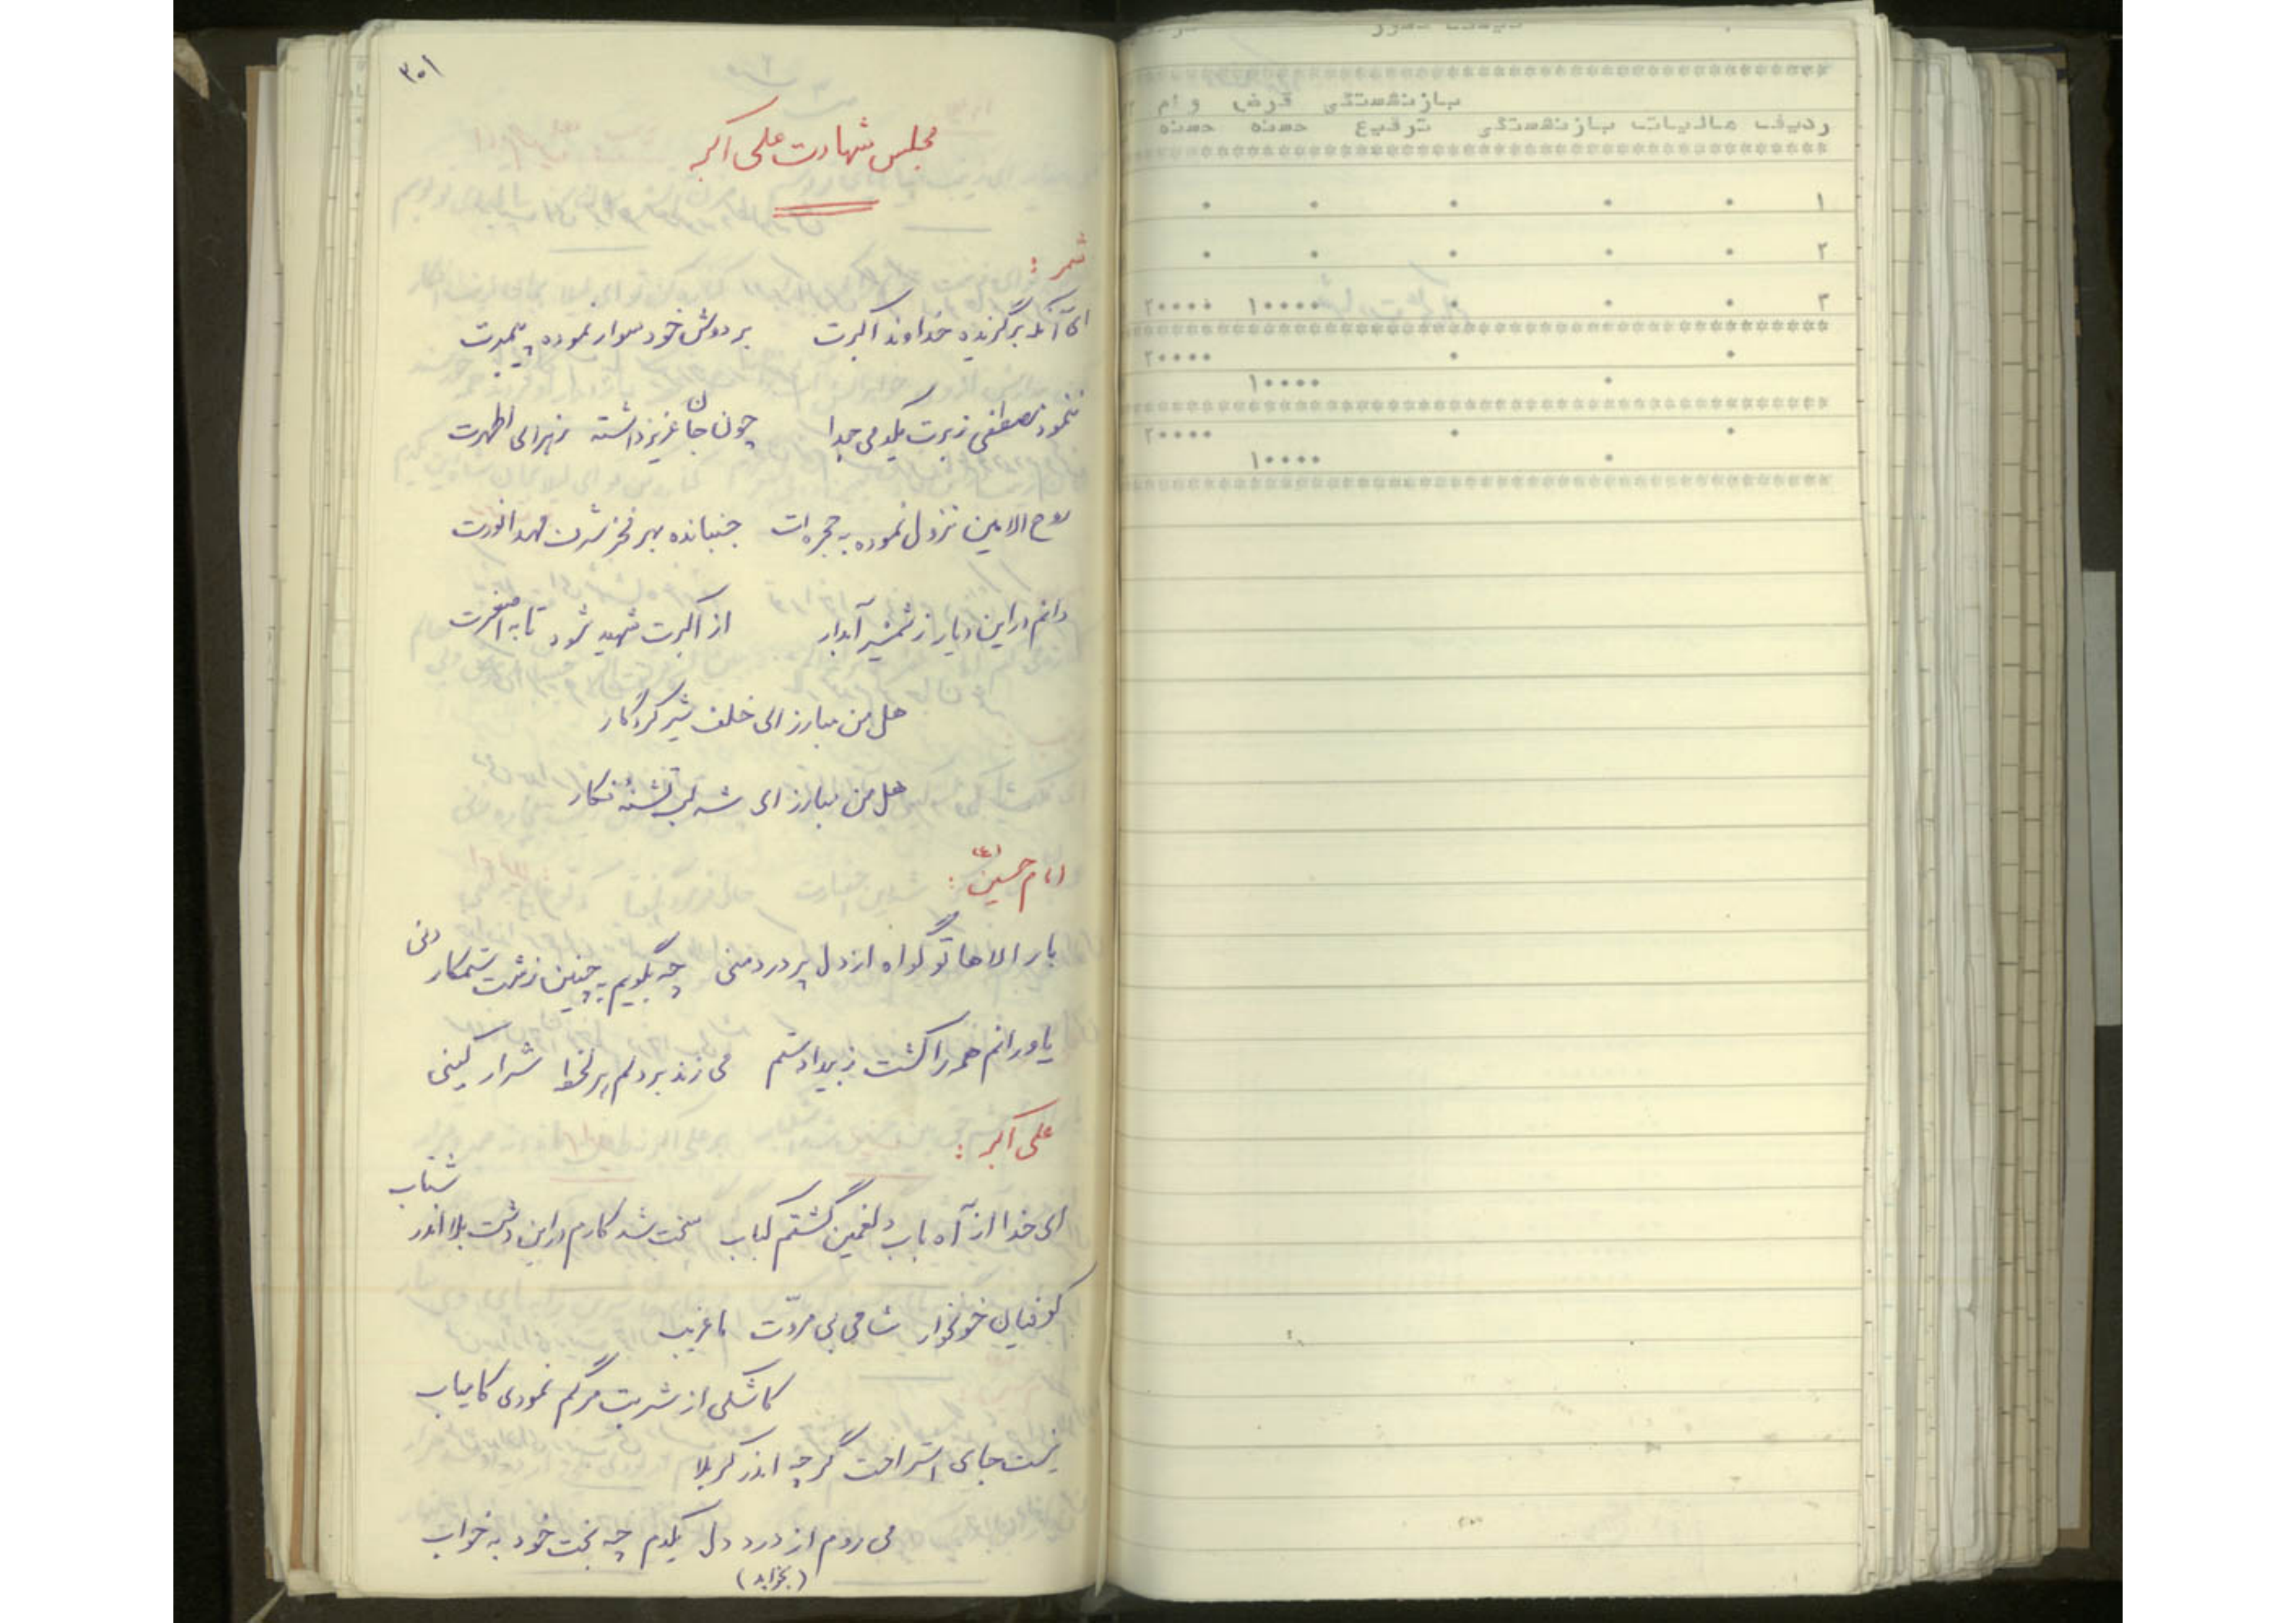 ۳۰۱
مجلس شهادت علی اکبر
شمر :
ای آنکه برگزیده خداوند اکبرت بر دوش خود سوار نموده پیمبرت
ننمود مصطفی ز برت یکدمی جدا چون جان عزیز داشته زهرای اطهرت
روح الامین نزول نموده به حجره ات جنبانده بهر فخر شرف مهد انورت
دانم در این دیار ز شمشیر آبدار از اکبرت شهید شود تا به اصغرت
هل من مبارز ای خلف شیر کردگار
هل من مبارز ای شه لب تشنهٔ نگار
امام حسین (ع) :
بار الاها تو گواه از دل پر درد منی چه بگویم به چنین زشت ستمکار دنی
یاورانم همه را کشت ز بیداد ستم می زند بر دلم شرار کینی
علی اکبر :
ای خدا از آه باب دلغمین گشتم کباب سخت شد کارم در این دشت بلا اندر شتاب
کوفیان خونخوار شامی بی مروّت ما غریب
کاشکی از شربت مرگم نمودی کامیاب
نیست جای استراحت گرچه اندر کربلا
می روم از درد دل یکدم چه بخت خود به خواب
(بخوابد)
بازنشستگی قرض و ام
ردیف مالیات بازنشستگی ترفیع حسنه حسنه
۱ ۰ ۰ ۰ ۰ ۰
۲ ۰ ۰ ۰ ۰ ۰
۳ ۰ ۰ ۰ ۱۰۰۰۰ ۲۰۰۰۰
۰ ۰ ۲۰۰۰۰
۰ ۱۰۰۰۰
۰ ۰ ۲۰۰۰۰
۰ ۱۰۰۰۰